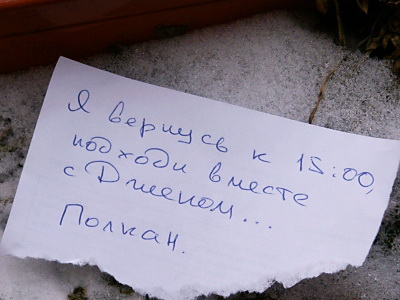 Я вернусь к 15:00,
подходи вместе
с Дженом...
Полкан.